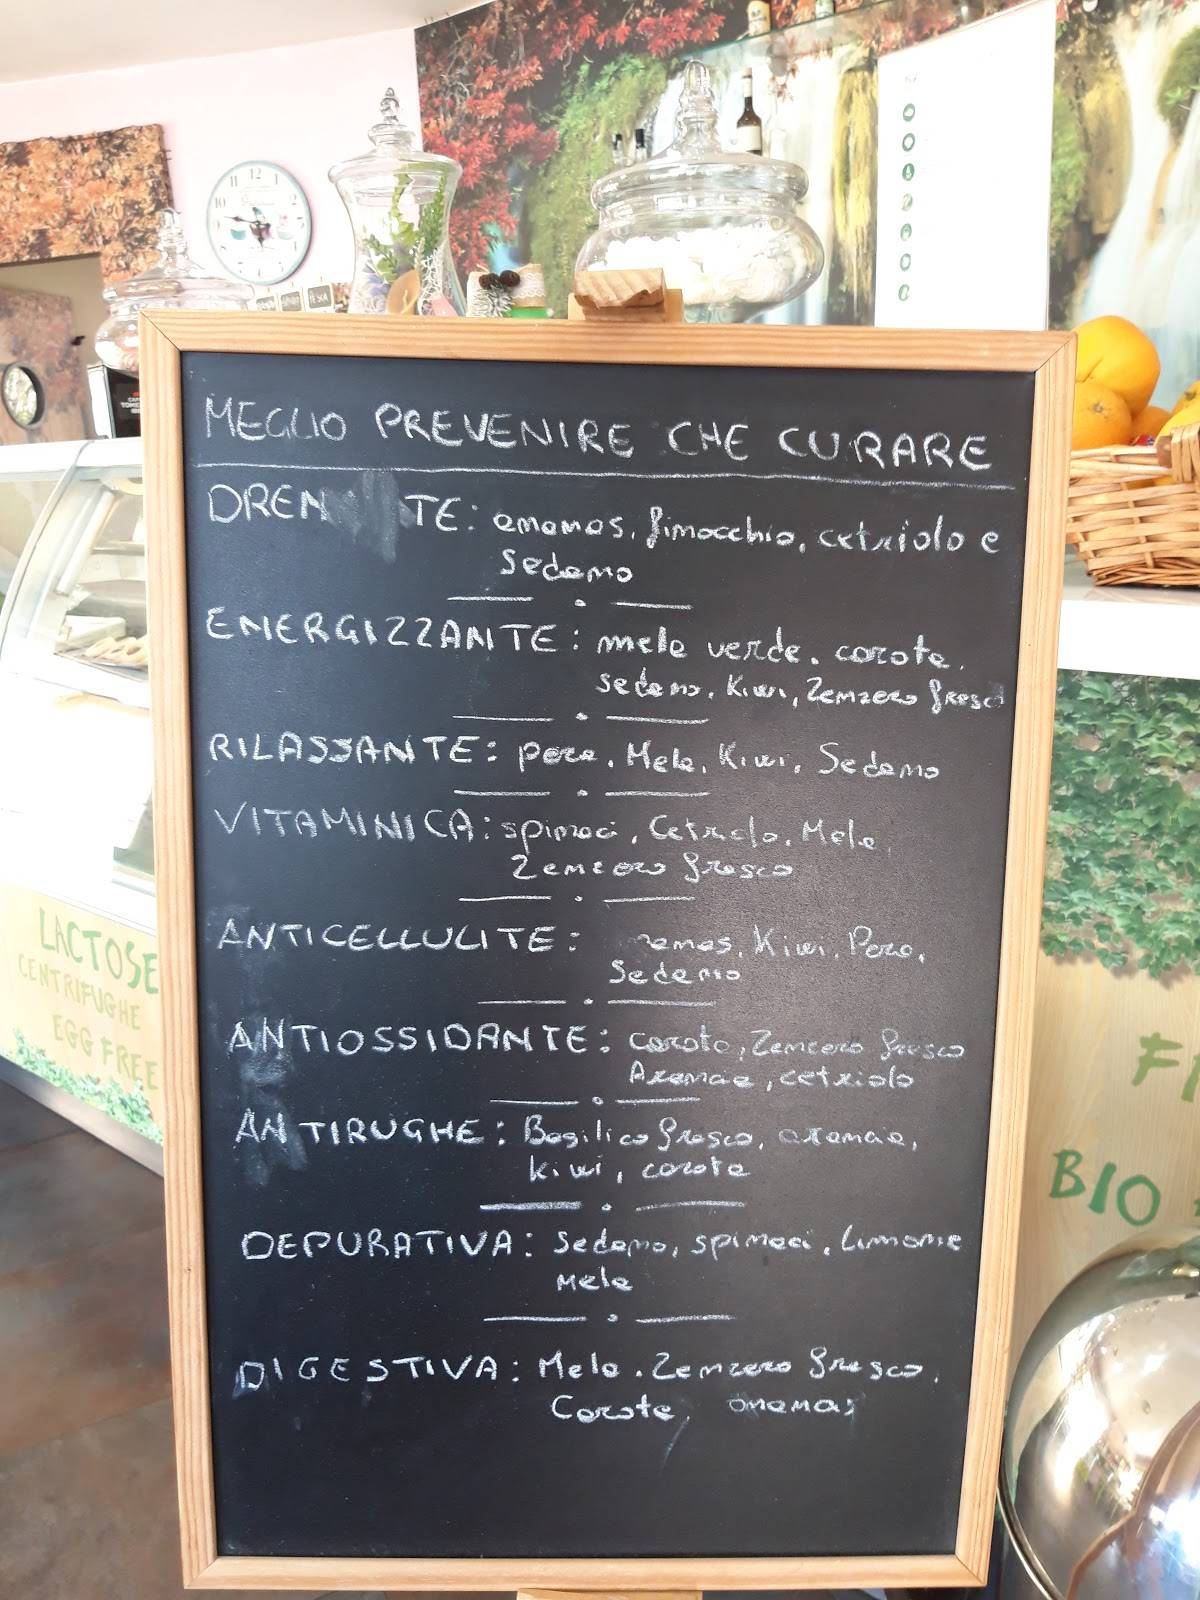 MEGLIO PREVENIRE CHE CURARE
DREN TE: ananas, finocchio, cetriolo e
sedano
ENERGIZZANTE: mele verde, carota,
sedano, Kiwi, Zenzero fresco
RILASSANTE: pera, Mela, Kiwi, Sedano
VITAMINICA: spinaci, Cetriolo, Mela,
Zenzero fresco
ANTICELLULITE: nanas, Kiwi, Pera,
Sedano
ANTIOSSIDANTE: carota, Zenzero fresco
Arancia, cetriolo
ANTIRUGHE: Basilico fresco, arancia,
kiwi, carota
DEPURATIVA: Sedano, spinaci, Limone
Mela
DIGESTIVA: Mela, Zenzero fresco,
Carota, ananas
LACTOSE
CENTRIFUGHE
EGG FREE
BIO